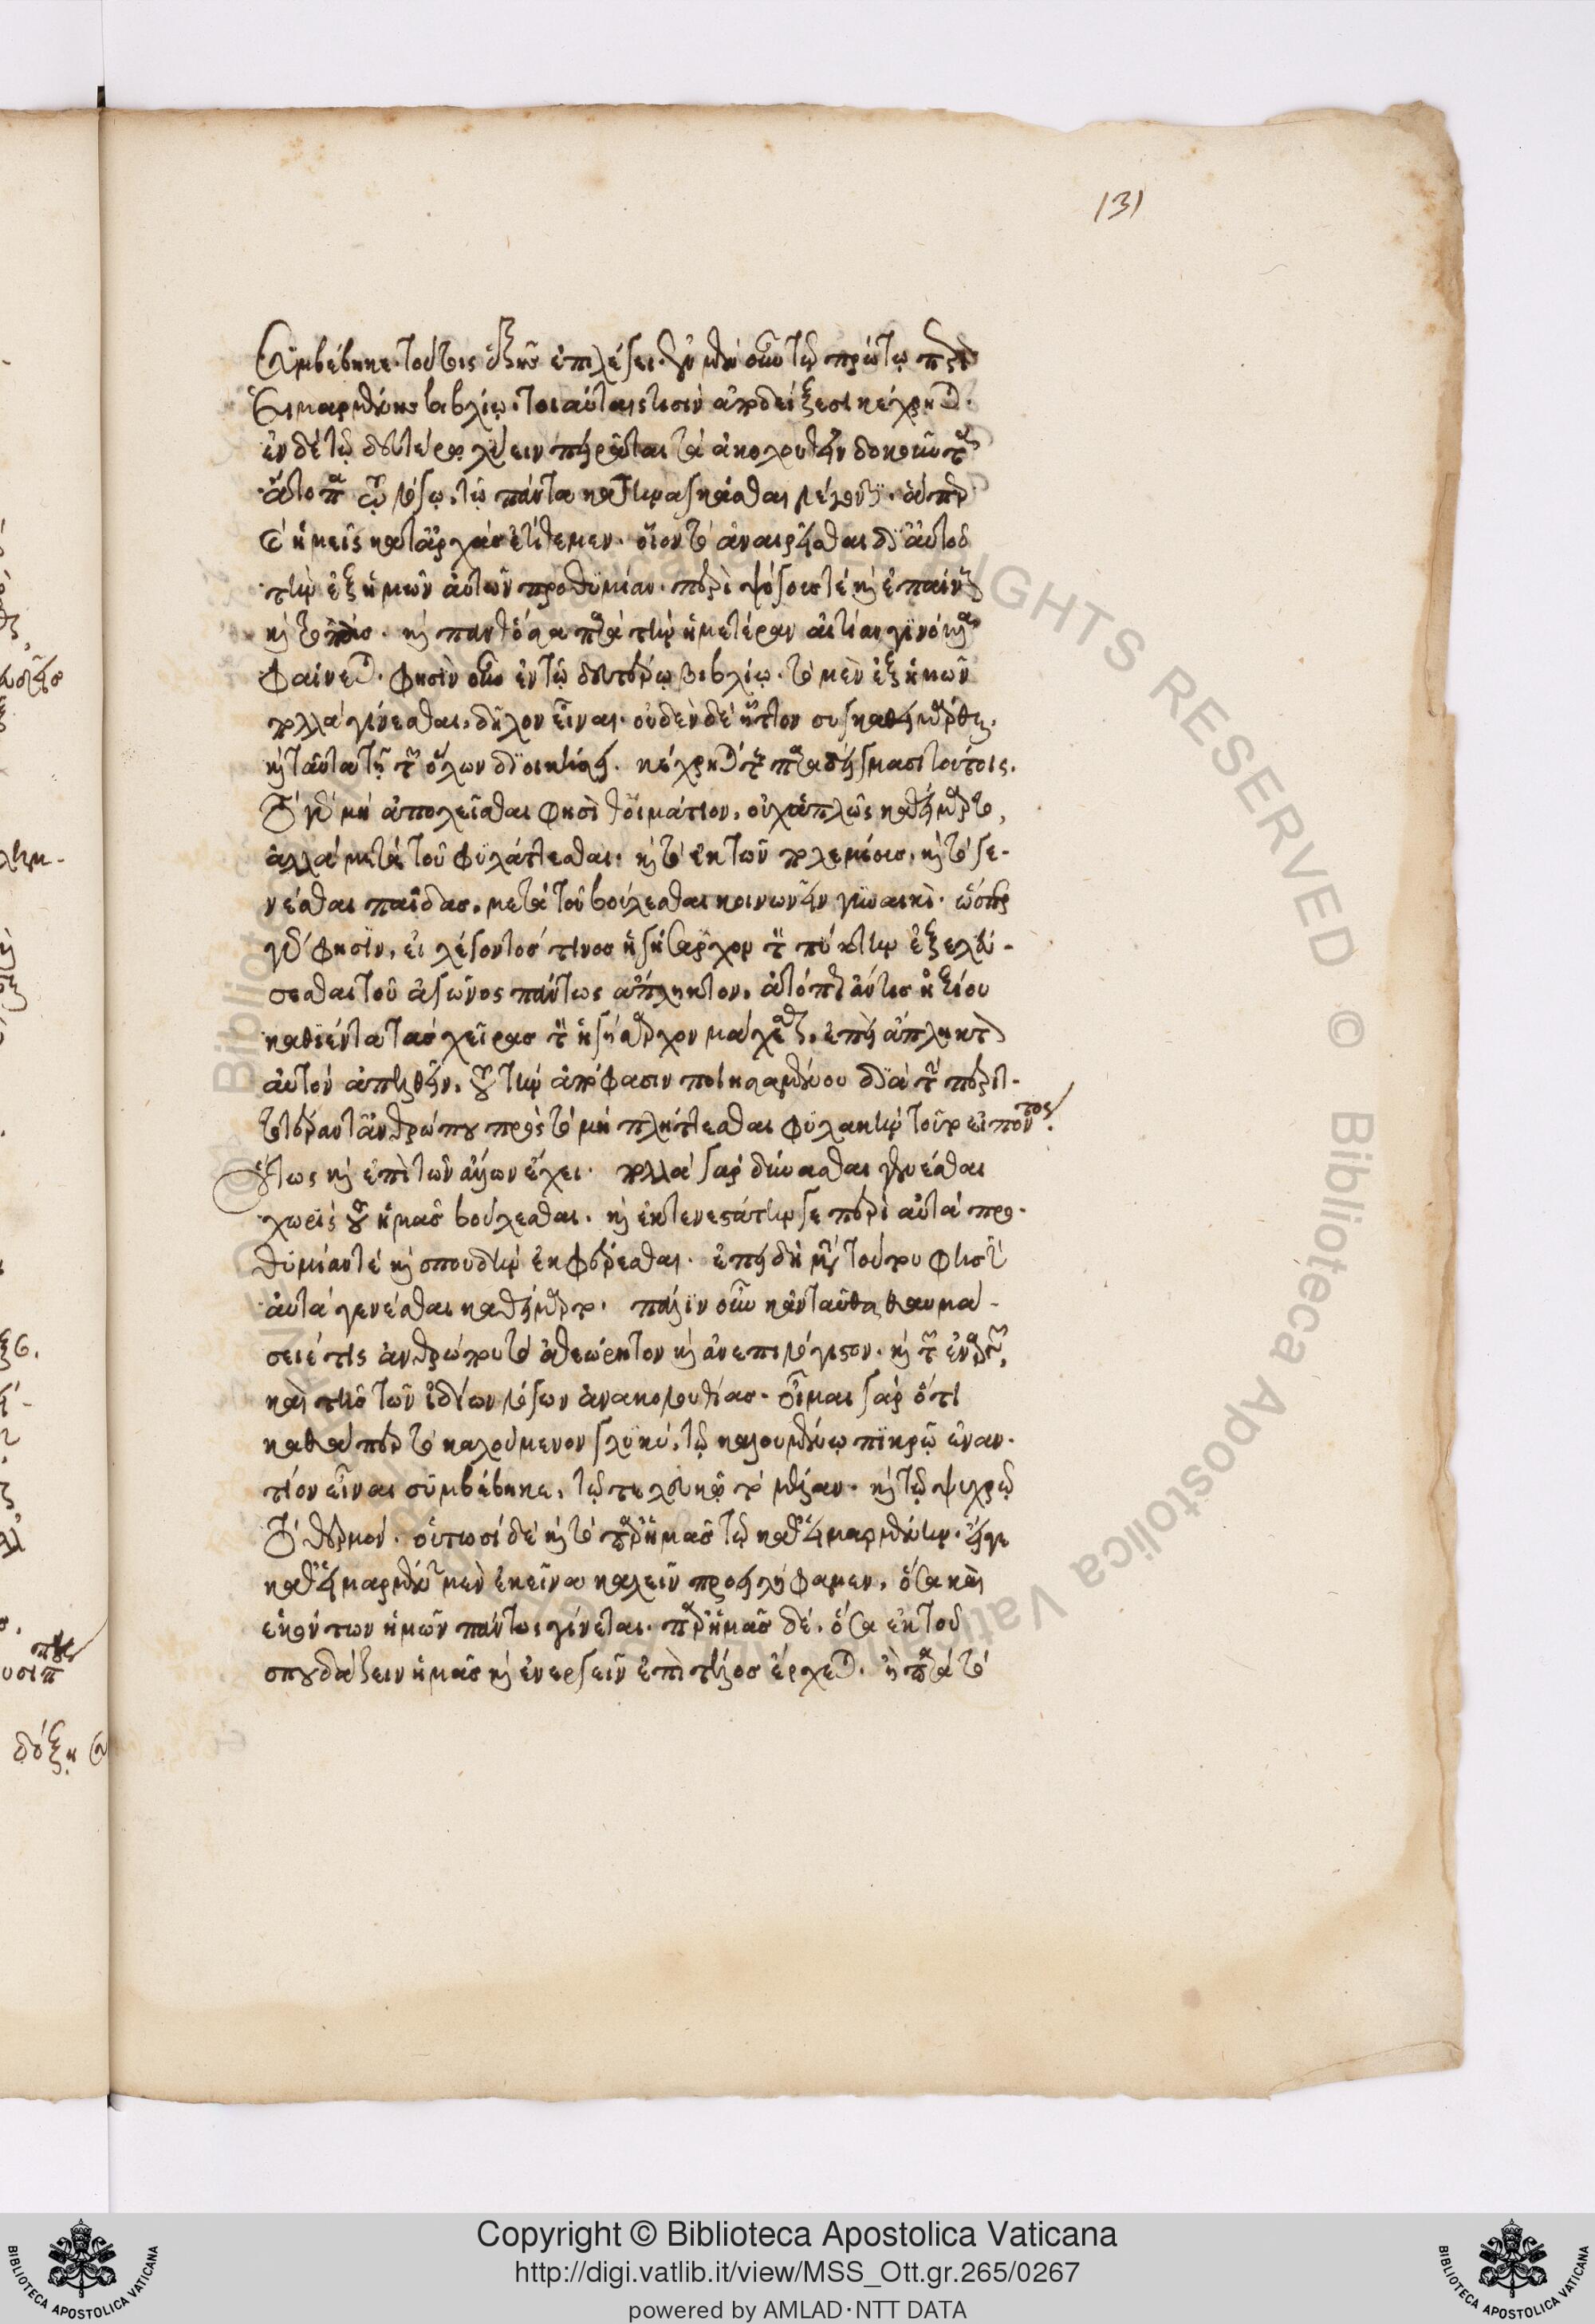 Συμβέβηκε. τούτοις ἑξῆς ἐπιλέγει. ἐν μὲν οὖν τῷ πρώτῳ περὶ
Εἱμαρμένης βιβλίῳ. τοιαύταις τισὶν ἀποδείξεσι κέχρηται.
ἐν δὲ τῷ δευτέρῳ λύειν πειρᾶται τὰ ἀκολουθεῖν δοκοῦντα
ἄτοπα τῷ λόγῳ, τῷ πάντα κατηναγκάσθαι λέγοντι. ἅπερ
ἡμεῖς κατἀρχὰς ἐτίθεμεν. οἷον τὸ ἀναιρεῖσθαι διαὐτοῦ
τὴν ἐξ ἡμῶν αὐτῶν προθυμίαν. περὶ ψόγους τὲ καὶ ἐπαίνους
καὶ πανθόσα παρὰ τὴν ἡμετέραν αἰτίαν γινόμενα
φαίνεται. φησὶν οὖν ἐν τῷ δευτέρῳ βιβλίῳ. τὸ μὲν ἐξ ἡμῶν
πολλὰ γίνεσθαι, δῆλον εἶναι. οὐδὲν δὲ ἧττον συγκαθειμάρθαι,
καὶ ταῦτα τῇ τῶν ὅλων διοικήσει. κέχρηταί τε παραδείγμασι τούτοις.
Τὸ γὰρ μὴ ἀπολεῖσθαι φησὶ θοἰμάτιον, οὐχ ἁπλῶς καθείμαρτο,
ἀλλὰ μετὰ τοῦ φυλάττεσθαι. καὶ τὸ ἐκ τῶν πολεμίους. καὶ τὸ γε-
νέσθαι παῖδας, μετὰ τοῦ βούλεσθαι κοινωνεῖν γυναικὶ. ὥσπερ
γὰρ φησὶν, εἰ λέγοντος τινος ἡγήσαρχον τὸν πύκτην ἐξελεύ-
σεσθαι τοῦ ἀγῶνος πάντως ἄπληκτον, ἀτόπως ἄν τις ἠξίου
καθιέντα τὰς χεῖρας τὸν ἡγήσαρχον μάχεσθαι, ἐπεὶ ἄπληκτον
αὐτὸν ἀπελθεῖν, τὴν ἀπόφασιν ποιησαμένου διὰ τὴν περιτ-
τοτέραν τἀνθρώπου πρὸς τὸ μὴ πλήττεσθαι φυλακὴν τοῦτο εἰπόντος.
οὕτως καὶ ἐπὶ τῶν ἄλλων ἔχει. πολλὰ γὰρ δύνασθαι γενέσθαι
χωρὶς τοῦ ἡμᾶς βούλεσθαι. καὶ ἐκτενεστάτην γε περὶ αὐτὰ προ-
θυμίαν τὲ καὶ σπουδὴν ἐκφέρεσθαι. ἐπειδὴ μετὰ τούτου φησὶ τὸ
αὐτὰ γενέσθαι καθείμαρτο. πάλιν οὖν κἀνταῦθα θαυμά-
σειέ τις ἀνθρώπου τὸ ἀθεώρητον καὶ ἀνεπιλόγιστον. καὶ τῶν ἐναργῶν,
καὶ τῆς τῶν ἰδίων λόγων ἀνακολουθίας. οἶμαι γὰρ ὅτι
καθάπερ τὸ καλούμενον γλυκὺ, τῷ καλουμένῳ πικρῷ ἐναν-
τίον εἶναι συμβέβηκε, τῷ τε λευκῷ τὸ μέλαν. καὶ τῷ ψυχρῷ
Τὸ θερμόν. οὑτωσὶ δὲ καὶ τὸ παρἡμᾶς τῷ καθεἱμαρμένην. εἴγε
καθεἱμαρμένην μὲν ἐκεῖνα καλεῖν προειλήφαμεν, ὅσα καὶ
ἑκόντων ἡμῶν πάντως γίνεται. παρἡμᾶς δὲ, ὅσα ἐκ τοῦ
σπουδάζειν ἡμᾶς καὶ ἐνεργεῖν ἐπὶ τέλος ἔρχεται. ἢ παρὰ τὸ
131
Copyright © Biblioteca Apostolica Vaticana
http://digi.vatlib.it/view/MSS_Ott.gr.265/0267
powered by AMLAD·NTT DATA